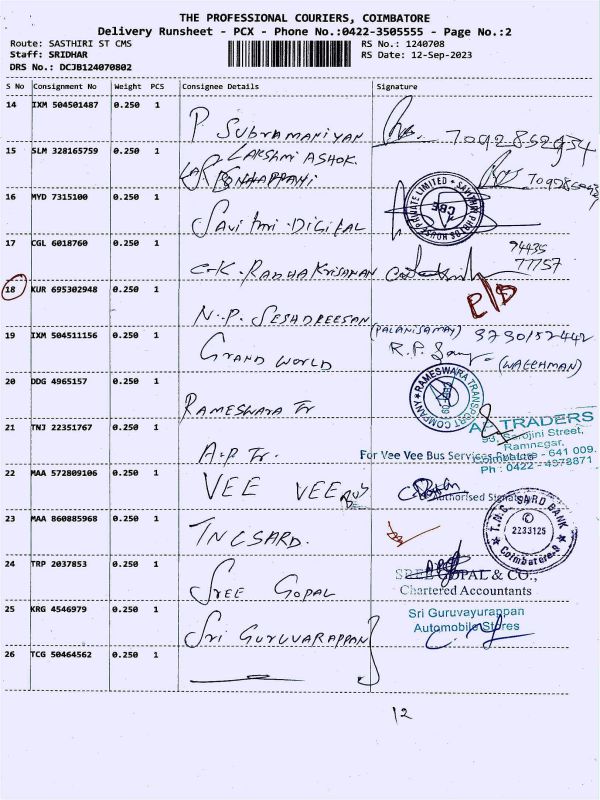 THE PROFESSIONAL COURIERS, COIMBATORE
Delivery Runsheet - PCX - Phone No.:0422-3505555 - Page No.:2
Route: SASTHIRI ST CMS
RS No.: 1240708
Staff: SRIDHAR
RS Date: 12-Sep-2023
DRS No.: DCJB124070802
S No Consignment No Weight PCS Consignee Details Signature
14 IXM 504501487 0.250 1 P. SUBRAMANIYAN 7092862934
15 SLM 328165759 0.250 1 LAKSHMI ASHOK.
16 MYD 7315100 0.250 1 SAVITHRI DIGITAL
PRIVATE LIMITED • SAVITHRI PHOTOS HOUSE CBE
17 CGL 6018760 0.250 1 C.K. RADHAKRISHNAN 94435
77757
18 KUR 695302948 0.250 1 N.P. SESHDREESAN
19 IXM 504511156 0.250 1 GRAND WORLD (PALANISAMY) 9790152442
R.P. Samy (WATCHMAN)
20 DDG 4965157 0.250 1 RAMESWARA Tr
RAMESWARA TRANSPORT COMPANY
21 TNJ 22351767 0.250 1 A.P Tr.
A.P. TRADERS
93, Sarojini Street,
Ramnagar,
Coimbatore - 641 009.
Ph : 0422 - 4378871
For Vee Vee Bus Services
22 MAA 572809106 0.250 1 VEE VEE BUS
Authorised Signatory
23 MAA 860885968 0.250 1 TNCSARD.
T.N.C. SARD BANK
2233125
Coimbatore-9
24 TRP 2037853 0.250 1 SREE GOPAL
SREE GOPAL & CO.,
Chartered Accountants
25 KRG 4546979 0.250 1 SRI GURUVARAPPAN
Sri Guruvayurappan
Automobile Stores
26 TCG 50464562 0.250 1
12